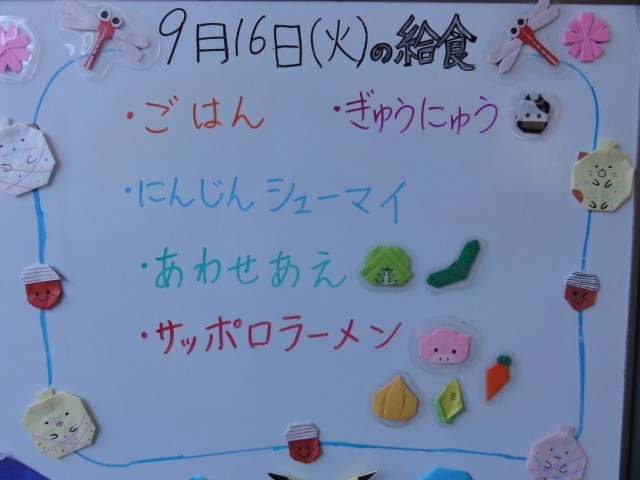 9月16日(火)の給食
・ごはん ・ぎゅうにゅう
・にんじんシューマイ
・あわせあえ
・サッポロラーメン